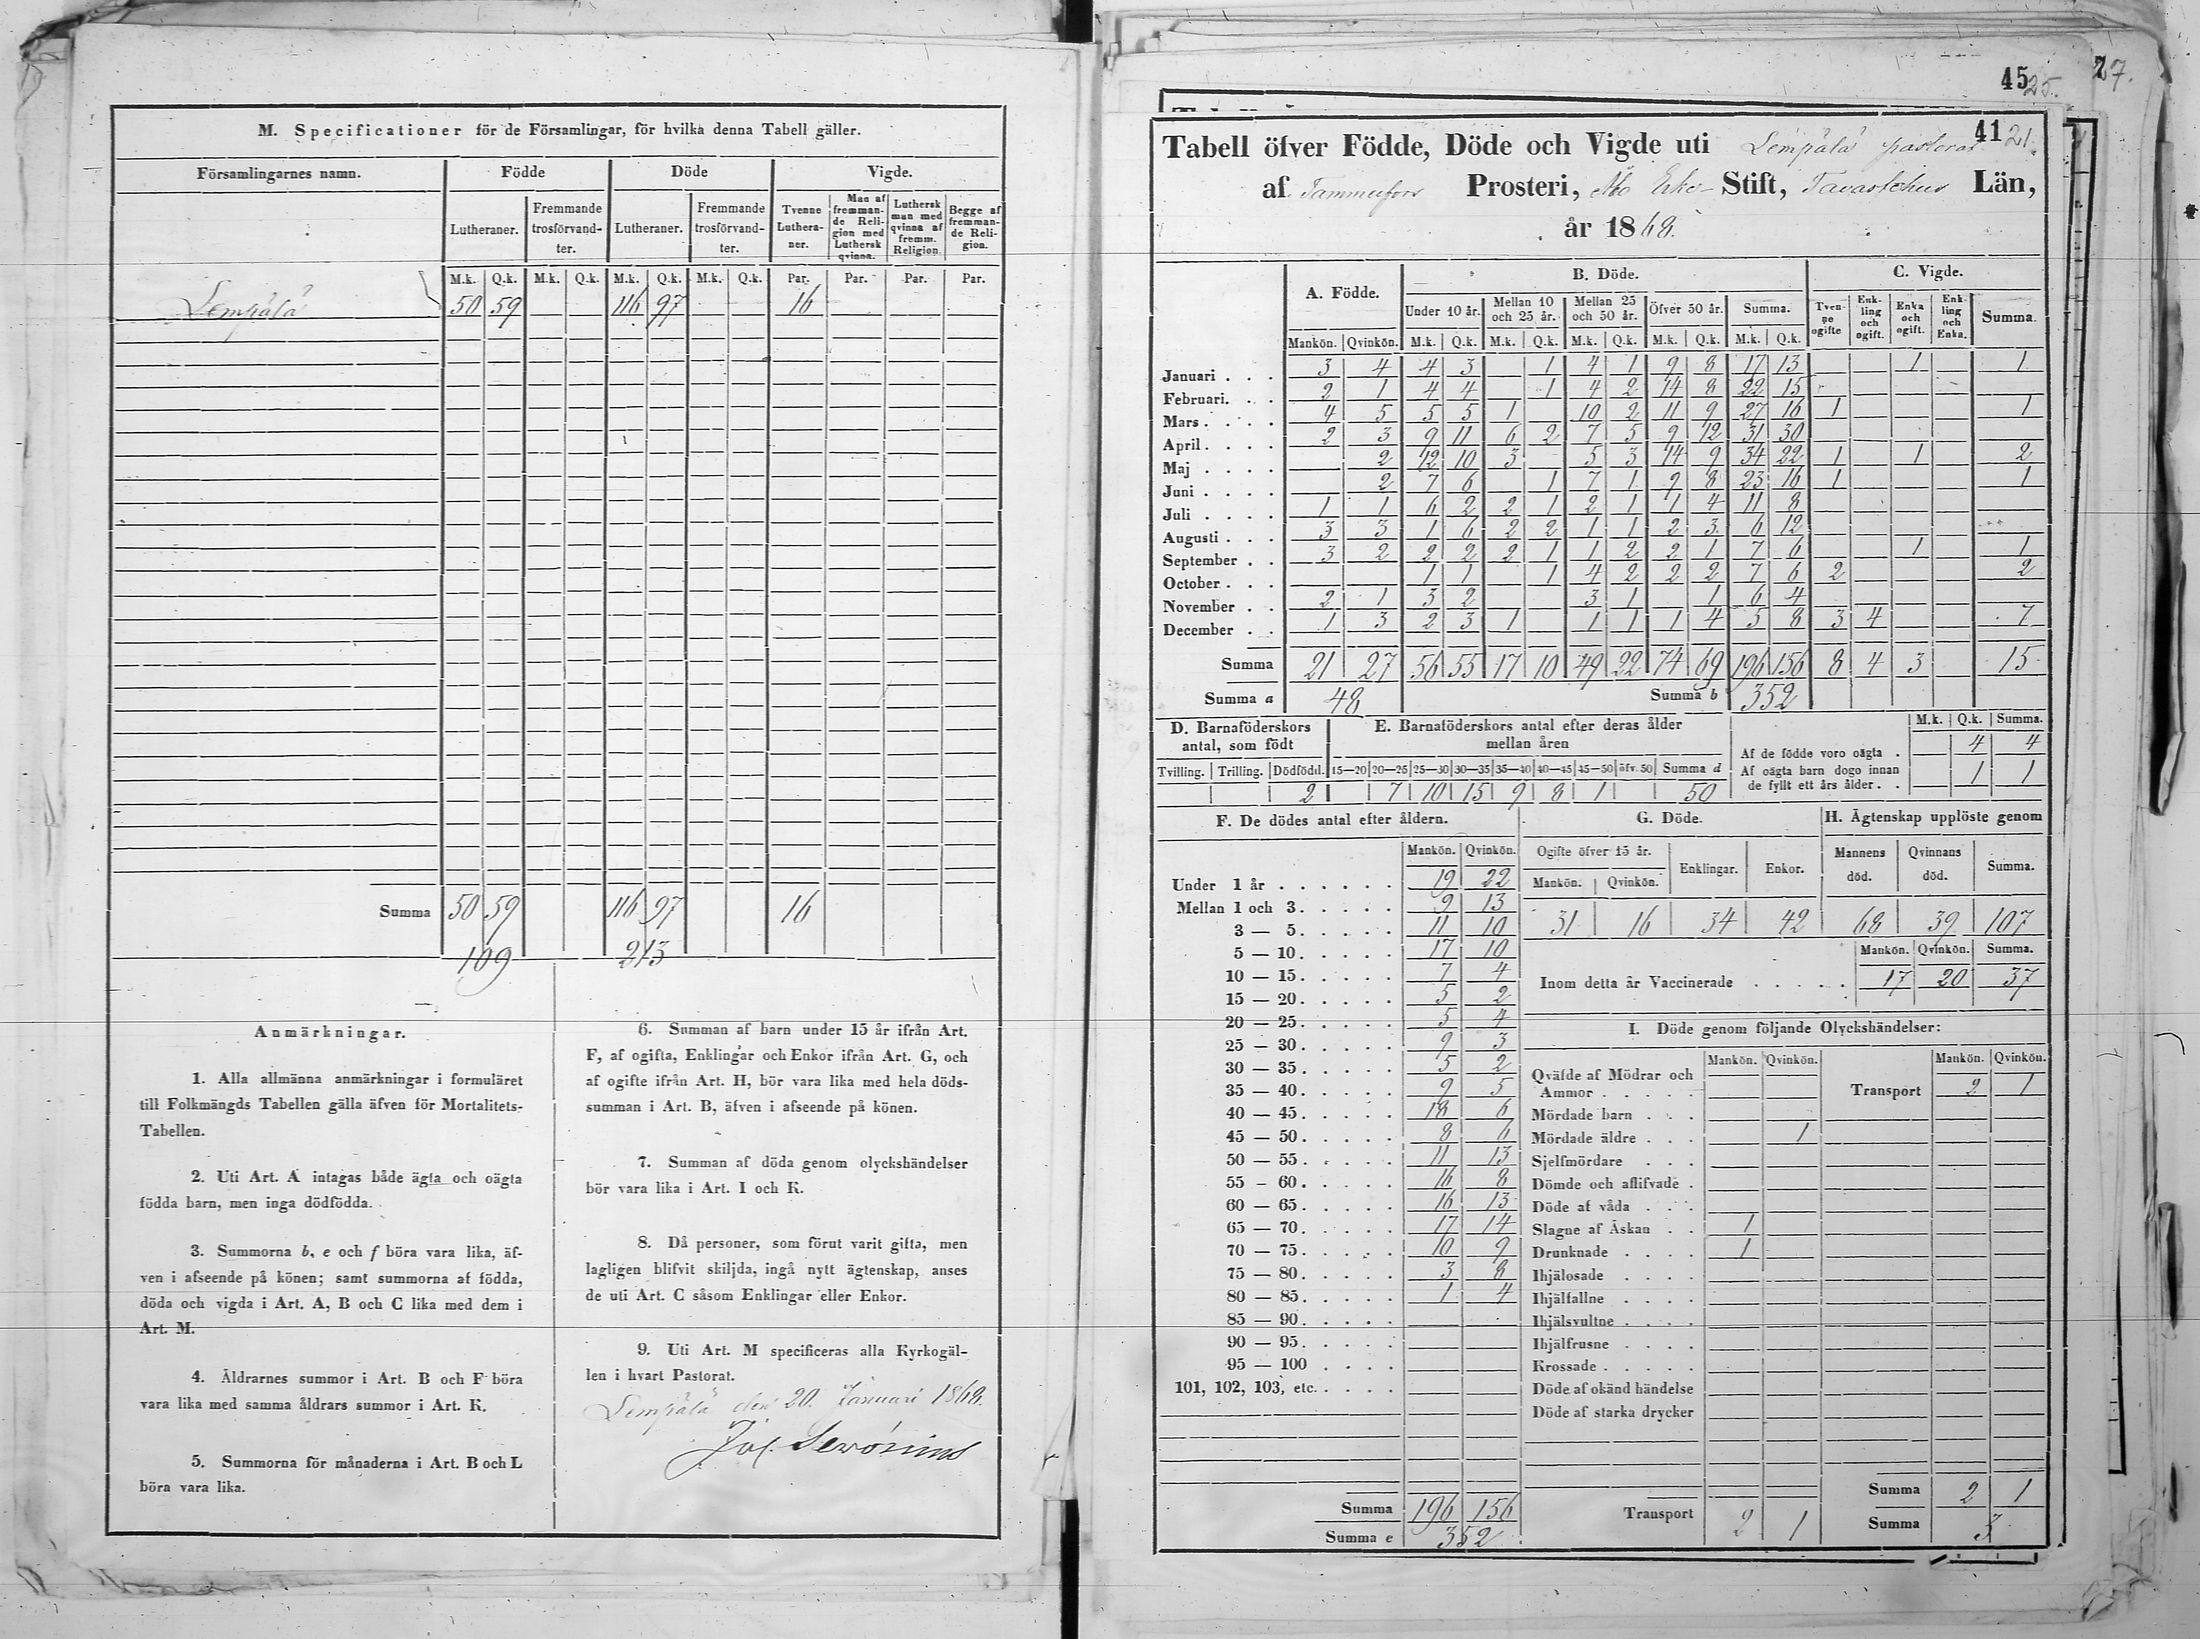 M. Specificationer för de Församlingar, för hvilka denna Tabell gäller.
Församlingarnes namn. Födde Döde Vigde.
Lutheraner. Fremmande trosförvandter. Lutheraner. Fremmande trosförvandter. Tvenne Lutheraner. Man af fremmande Religion med Luthersk qvinna. Luthersk man med qvinna af fremm. Religion. Begge af fremmande Religion.
M.k. Q.k. M.k. Q.k. M.k. Q.k. M.k. Q.k. Par. Par. Par. Par.
Lempälä 50 59 116 97 16
Summa 50 59 116 97 16
109 213
Anmärkningar.
1. Alla allmänna anmärkningar i formuläret
till Folkmängds Tabellen gälla äfven för Mortalitets-
Tabellen.
2. Uti Art. A intagas både ägta och oägta
födda barn, men inga dödfödda.
3. Summorna b, e och f böra vara lika, äf-
ven i afseende på könen; samt summorna af födda,
döda och vigda i Art. A, B och C lika med dem i
Art. M.
4. Åldrarnes summor i Art. B och F böra
vara lika med samma åldrars summor i Art. K.
5. Summorna för månaderna i Art. B och L
böra vara lika.
6. Summan af barn under 15 år ifrån Art.
F, af ogifta, Enklingar och Enkor ifrån Art. G, och
af ogifte ifrån Art. H, bör vara lika med hela döds-
summan i Art. B, äfven i afseende på könen.
7. Summan af döda genom olyckshändelser
bör vara lika i Art. I och K.
8. Då personer, som förut varit gifta, men
lagligen blifvit skiljda, ingå nytt ägtenskap, anses
de uti Art. C såsom Enklingar eller Enkor.
9. Uti Art. M specificeras alla Kyrkogäl-
len i hvart Pastorat.
Lempälä den 20. Januari 1868.
45 25. 27.
41 21.
Tabell öfver Födde, Döde och Vigde uti Lempälä pastorat
af Tammerfors Prosteri, Åbo Erke Stift, Tavastehus Län,
år 1868.
A. Födde. B. Döde. C. Vigde.
Under 10 år. Mellan 10 och 25 år. Mellan 25 och 50 år. Öfver 50 år. Summa. Tvenne ogifte Enkling och ogift. Enka och ogift. Enkling och Enka. Summa.
Mankön. Qvinkön. M.k. Q.k. M.k. Q.k. M.k. Q.k. M.k. Q.k. M.k. Q.k.
Januari 3 4 4 3 1 4 1 9 8 17 13 1 1
Februari. 2 1 4 4 1 4 2 14 8 22 15
Mars 4 5 5 5 1 10 2 11 9 27 16 1 1
April 2 3 9 11 6 2 7 5 9 12 31 30
Maj 2 12 10 3 5 3 14 9 34 22 1 1 2
Juni 2 7 6 1 7 1 9 8 23 16 1 1
Juli 1 1 6 2 2 1 2 1 1 4 11 8
Augusti 3 3 1 6 2 2 1 1 2 3 6 12
September 3 2 2 2 2 1 1 2 2 1 7 6 1 1
October 1 1 1 4 2 2 2 7 6 2 2
November 2 1 3 2 3 1 1 6 4
December 1 3 2 3 1 1 1 1 4 5 8 3 4 7
Summa 21 27 56 55 17 10 49 22 74 69 196 156 8 4 3 15
Summa a 48 Summa b 352
D. Barnaföderskors antal, som födt
E. Barnaföderskors antal efter deras ålder mellan åren
M.k. Q.k. Summa.
Af de födde voro oägta 4 4
Af oägta barn dogo innan de fyllt ett års ålder 1 1
Tvilling. Trilling. Dödfödd. 15—20 20—25 25—30 30—35 35—40 40—45 45—50 öfv. 50 Summa d
2 7 10 15 9 8 1 50
F. De dödes antal efter åldern.
Mankön. Qvinkön.
Under 1 år 19 22
Mellan 1 och 3 9 13
3 — 5 11 10
5 — 10 17 10
10 — 15 7 4
15 — 20 5 2
20 — 25 5 4
25 — 30 9 3
30 — 35 5 2
35 — 40 9 5
40 — 45 18 6
45 — 50 8 6
50 — 55 11 13
55 — 60 16 8
60 — 65 16 13
65 — 70 17 14
70 — 75 10 9
75 — 80 3 8
80 — 85 1 4
85 — 90
90 — 95
95 — 100
101, 102, 103, etc.
Summa 196 156
Summa e 352
G. Döde. H. Ägtenskap upplöste genom
Ogifte öfver 15 år. Enklingar. Enkor. Mannens död. Qvinnans död. Summa.
Mankön. Qvinkön.
31 16 34 42 68 39 107
Mankön. Qvinkön. Summa.
Inom detta år Vaccinerade 17 20 37
I. Döde genom följande Olyckshändelser:
Mankön. Qvinkön. Mankön. Qvinkön.
Qväfde af Mödrar och Ammor Transport 2 1
Mördade barn
Mördade äldre 1
Sjelfmördare
Dömde och aflifvade
Döde af våda
Slagne af Åskan 1
Drunknade 1
Ihjälosade
Ihjälfallne
Ihjälsvultne
Ihjälfrusne
Krossade
Döde af okänd händelse
Döde af starka drycker
Summa 2 1
Transport 2 1 Summa 3